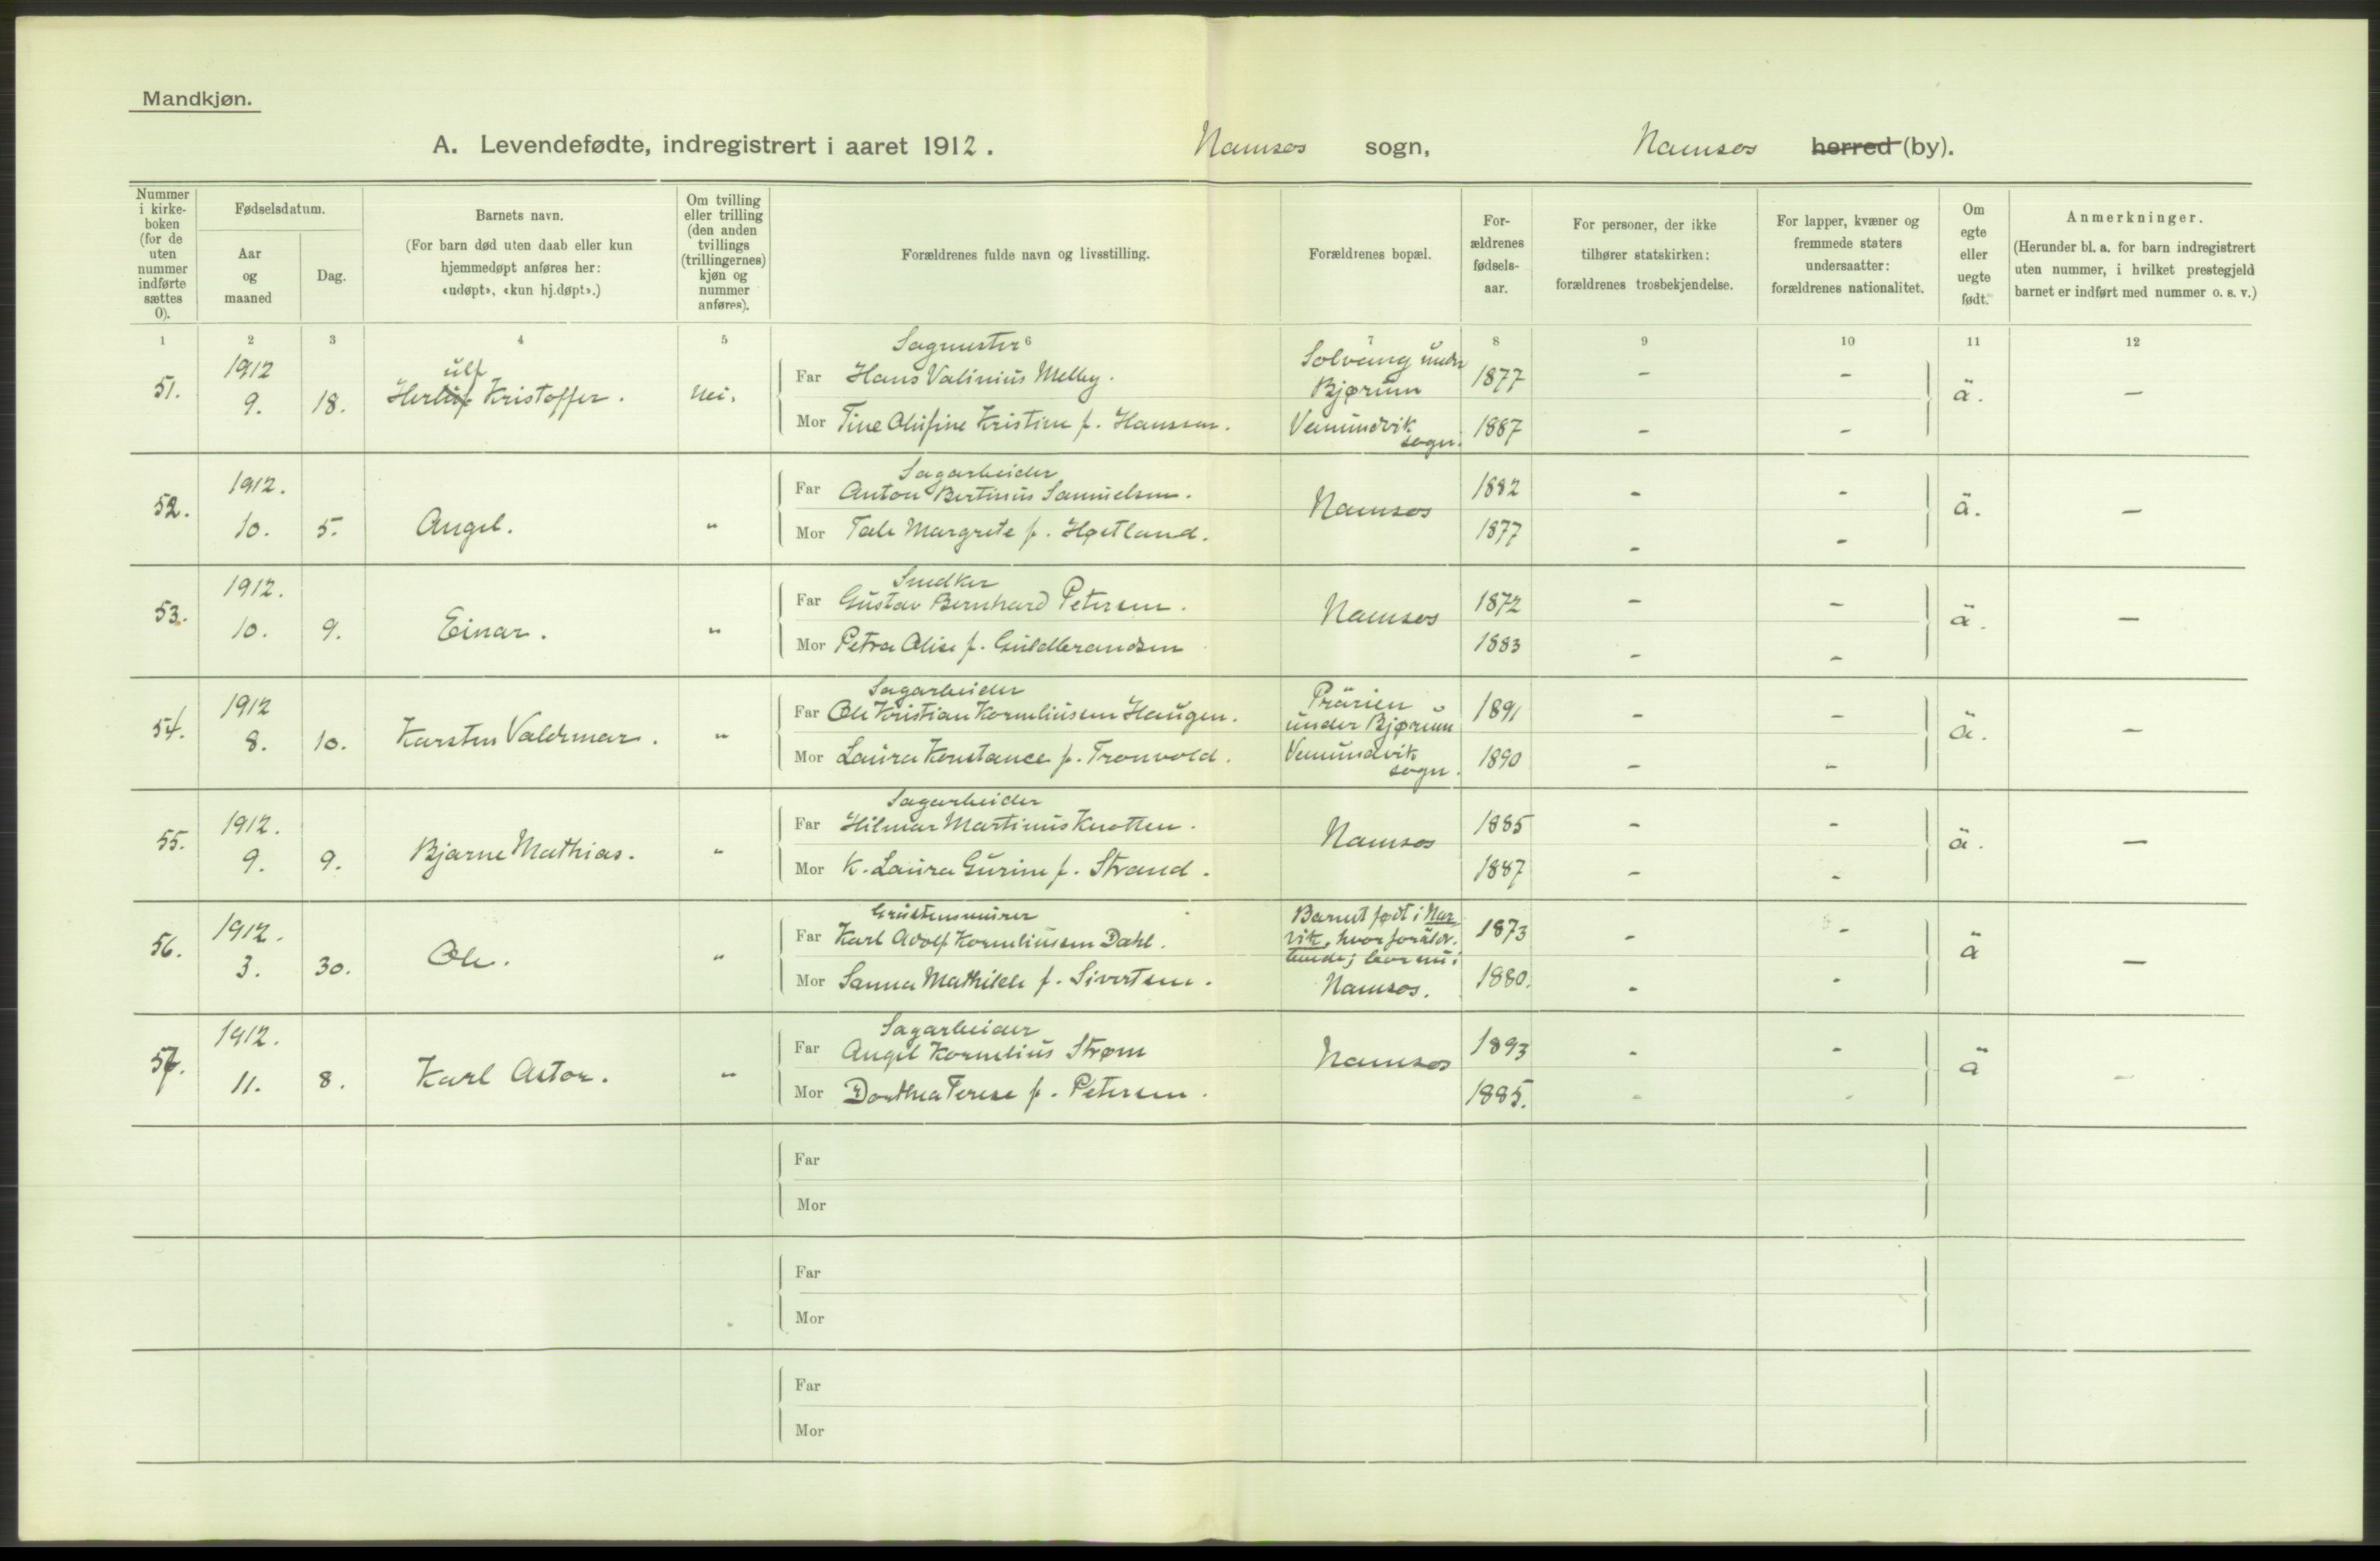 Mandkjøn.
A. Levendefødte, indregistrert i aaret 1912. Namsos sogn, Namsos herred (by).
Nummer i kirke-boken (for de uten nummer indførte sættes 0).
Fødselsdatum.
Aar og maaned
Dag.
Barnets navn.
(For barn død uten daab eller kun hjemmedøpt anføres her: «udøpt», «kun hj.døpt».)
Om tvilling eller trilling (den anden tvillings (trillingernes) kjøn og nummer anføres).
Forældrenes fulde navn og livsstilling.
Forældrenes bopæl.
For-ældrenes fødsels-aar.
For personer, der ikke tilhører statskirken: forældrenes trosbekjendelse.
For lapper, kvæner og fremmede staters undersaatter: forældrenes nationalitet.
Om egte eller uegte født.
Anmerkninger.
(Herunder bl. a. for barn indregistrert uten nummer, i hvilket prestegjeld barnet er indført med nummer o. s. v.)
1 2 3 4 5 6 7 8 9 10 11 12
Sagmester
51. 1912 9. 18. Herluf ulf Kristoffer. Nei. Far Hans Valinius Melby. Solvang under Bjørum 1877 - - ä. —
Mor Tine Olufine Kristine f. Hanssen. Vemundvik sogn. 1887 - -
Sagarbeider
52. 1912. 10. 5. Angel. " Far Anton Bertinus Samuelsen. Namsos 1882 - - ä. —
Mor Tale Margrete f. Høetland. 1877 - -
Snedker
53. 1912. 10. 9. Einar. " Far Gustav Bernhard Petersen. Namsos 1872 - - ä. —
Mor Petra Olise f. Guldbrandsen 1883 - -
Sagarbeider
54. 1912 8. 10. Karsten Valdemar. " Far Ole Kristian Korneliussen Haugen. Prärien under Bjørum 1891 - - ä. —
Mor Laura Konstance f. Tronvold. Vemundvik sogn. 1890 - -
Sagarbeider
55. 1912. 9. 9. Bjarne Mathias. " Far Hilmar Martinus Knotten. Namsos 1885 - - ä. —
Mor K. Laura Gurine f. Strand. 1887 - -
56. 1912. 3. 30. Ole. " Far Karl Adolf Korneliussen Dahl. Barnet født i Narvik, hvor foräldr. 1873 - - ä —
Mor Sanna Mathilde f. Sivertsen. bor nu i Namsos. 1880. - -
Sagarbeider
57. 1912. 11. 8. Karl Astor. " Far Angel Kornelius Strøm Namsos 1893 - - ä —
Mor Dorthea Terese f. Petersen. 1885. - -
Far
Mor
Far
Mor
Far
Mor